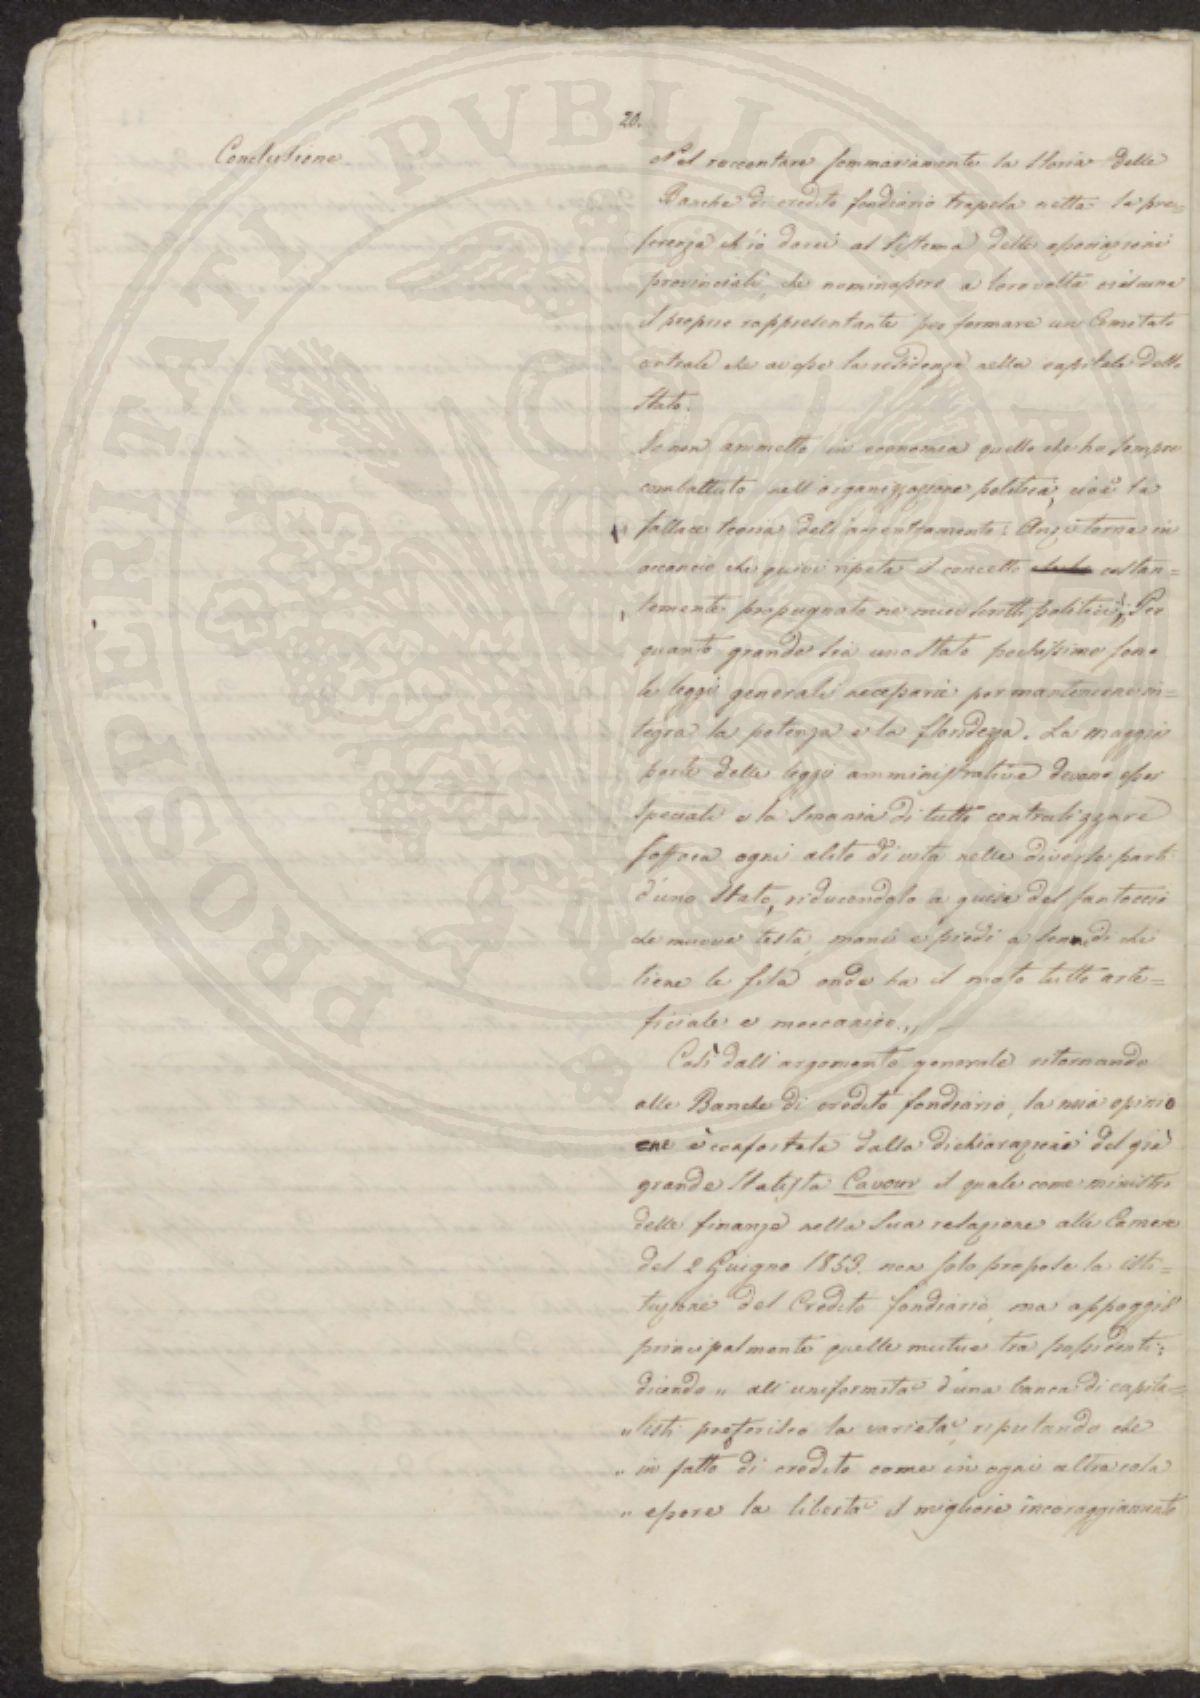 20.
Conclusione
Nel raccontare sommariamente la storia delle
Banche di credito fondiario trapela netta la pre=
ferenza ch'io darei al sistema delle associazioni
provinciali, che nominassero a loro volta ciascuna
il proprio rappresentante per formare un Comitato
centrale che avesse la residenza nella capitale dello
Stato.
Io non ammetto in economia quello che ho sempre
combattuto nell'organizzazione politica, cioè la
fallace teoria dell'accentramento: Anzi torna in
acconcio che quivi ripeta il concetto costan=
temente propugnato ne' miei scritti politici; Per
quanto grande sia uno Stato pochissime sono
le leggi generali necessarie per mantenerne in=
tegra la potenza e la floridezza. La maggior
parte delle leggi amministrative devono esser
speciali e la smania di tutto centralizzare
soffoca ogni alito di vita nelle diverse parti
d'uno Stato, riducendolo a guisa del fantoccio
che muove testa, mani e piedi a senno di chi
tiene le fila onde ha il moto tutto arte=
ficiale e meccanico.,,
Così dall'argomento generale ritornando
alle Banche di credito fondiario, la mia opinio
ne è confortata dalla dichiarazione del già
grande Statista Cavour il quale come ministro
delle finanze nella sua relazione alle Camere
del 2 Giugno 1853. non solo propose la isti=
tuzione del Credito fondiario, ma appoggiò
principalmente quelle mutue tra possidenti:
dicendo „ all'uniformità d'una banca di capita=
„ listi preferisco la varietà, riputando che
„ in fatto di credito come in ogni altra cosa
„ essere la libertà il migliore incoraggiamento
PROSPERITATI PUBLICAE AUGENDAE